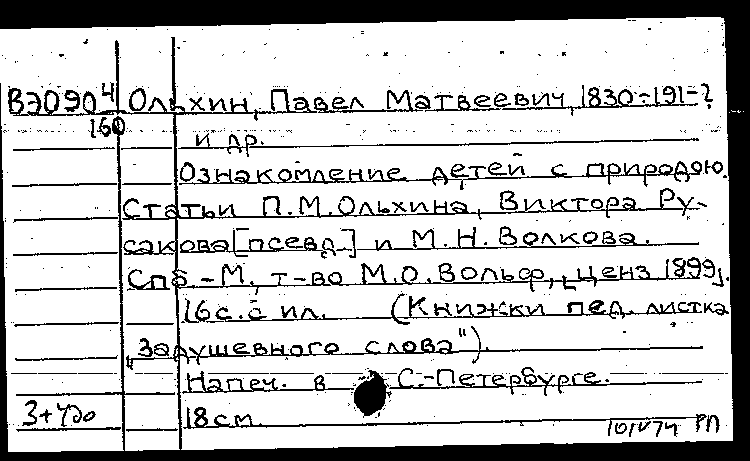 ВЭ090 4 Ольхин, Павел Матвеевич, 1830-191-?
160
и др.
Ознакомление детей с природою.
Статьи П.М.Ольхина, Виктора Ру-
сакова[псевд.] и М.Н.Волкова.
Спб.-М., т-во М.О.Вольф, [ценз 1899].
16с.с ил. (Книжки пед. листка
"Задушевного слова").
Напеч. в С.-Петербурге.
18см.
10/V74 РП